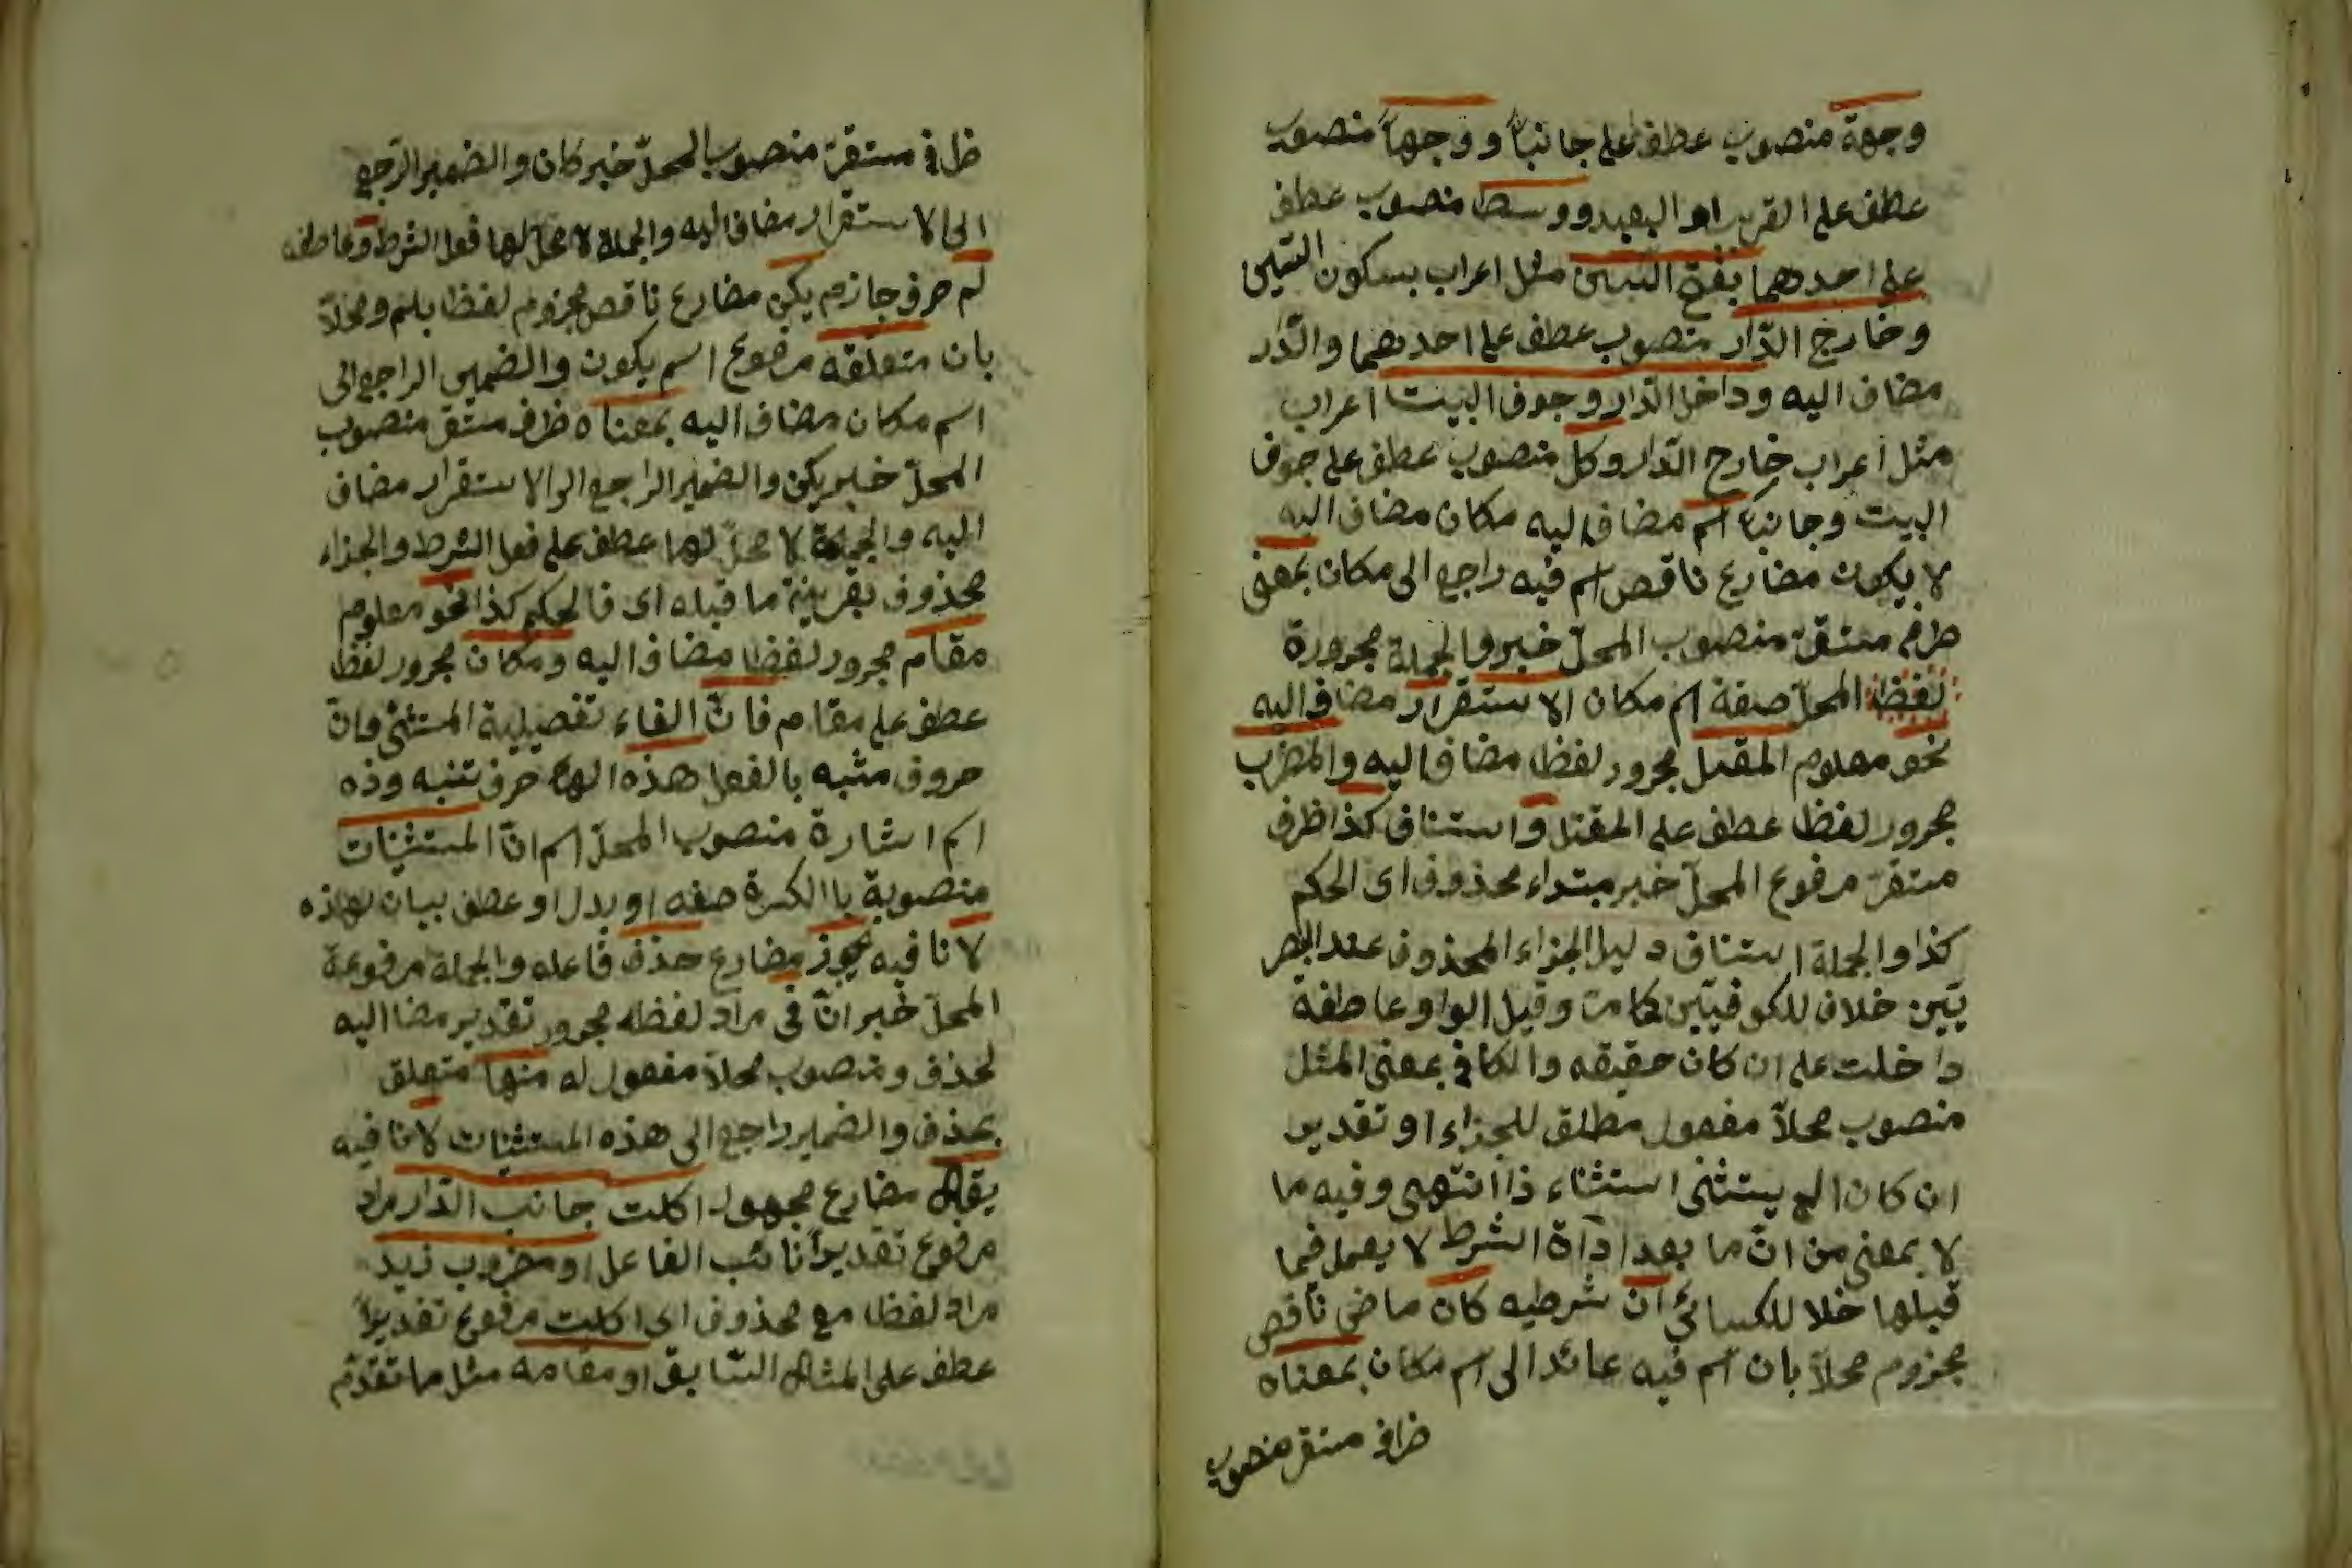 وجهة منصوب عطف على جانبا و وجهاً منصوب
عطف على القريب او البعيد و وسط منصوب عطف
على احدهما بفتح السين مثل اعراب بسكون السين
وخارج الدّار منصوب عطف على احدهما والدّار
مضاف اليه وداخل الدّار وجوف البيت اعراب
مثل اعراب خارج الدّار وكل منصوب عطف على جوف
البيت وجانبا اسم مضاف اليه مكان مضاف اليه
لا يكون مضارع ناقص اسم فيه راجع الى مكان بمعنى
مستقرّ منصوب المحلّ خبر والجملة مجرورة
لفظا المحلّ صفة اسم مكان الاستقرار مضاف اليه
نحو معلوم المقتل مجرور لفظا مضاف اليه والمضرب
مجرور لفظا عطف على المقتل واستناف كذا ظرف
مستقرّ مرفوع المحلّ خبر مبتداء محذوف اى الحكم
كذا والجملة استناف دليل الجزاء المحذوف عند البصر
يّين خلاف للكوفيّين كما مرّ وقيل الواو عاطفة
داخلت على ان كان حقيقه والكاف بمعنى المثل
منصوب محلاّ مفعول مطلق للجزاء او تقدير
ان كان الخ يستثنى استثناء ذا انتهى وفيه ما
لا بمعنى من انّ ما بعد اداة الشرط لا يعمل فيما
قبلها خلا للكسائي ان شرطيه كان ماضى ناقص
مجزوم محلاّ بان اسم فيه عائد الى اسم مكان بمعناه
ظرف مستقر منصوب
ظرف مستقرّ منصوب المحلّ خبر كان والضمير الرّجع
الى الاستقرار مضاف اليه والجملة لا محلّ لها فعل الشرط وعاطف
لم حرف جازم يكن مضارع ناقص مجزوم لفظا بلم ومحلاّ
بان متعلّقه مرفوع اسم يكون والضمير الراجع الى
اسم مكان مضاف اليه بمعناه ظرف مستقرّ منصوب
المحلّ خبر يكن والضمير الراجع الى الاستقرار مضاف
اليه والجملة لا محلّ لها عطف على فعل الشرط والجزاء
محذوف بقرينة ما قبله اى فالحكم كذا نحو معلوم
مقام مجرور لفظا مضاف اليه ومكان مجرور لفظا
عطف على مقام فانّ الفاء تفصيلية المستثنى وانّ
حروف مشبه بالفعل هذه الهاء حرف تنبه وذه
اسم اشارة منصوب المحلّ اسم انّ المستثنيات
منصوبة باالكسرة صفه او بدل او عطف بيان لهذه
لا نافيه يجوز مضارع حذف فاعله والجملة مرفوعة
المحلّ خبر انّ فى مراد لفظه مجرور تقدير مضا اليه
لحذف ومنصوب محلاّ مفعول له منها متعلق
بحذف والضمير راجع الى هذه المستثنيات لا نافيه
يقال مضارع مجهول اكلت جانب الدّار مراد
مرفوع تقديراً نائب الفاعل او مضروب زيد
مراد لفظا مع محذوف اى اكلت مرفوع تقديراً
عطف على المثال السّابق او مقامه مثل ما تقدّم